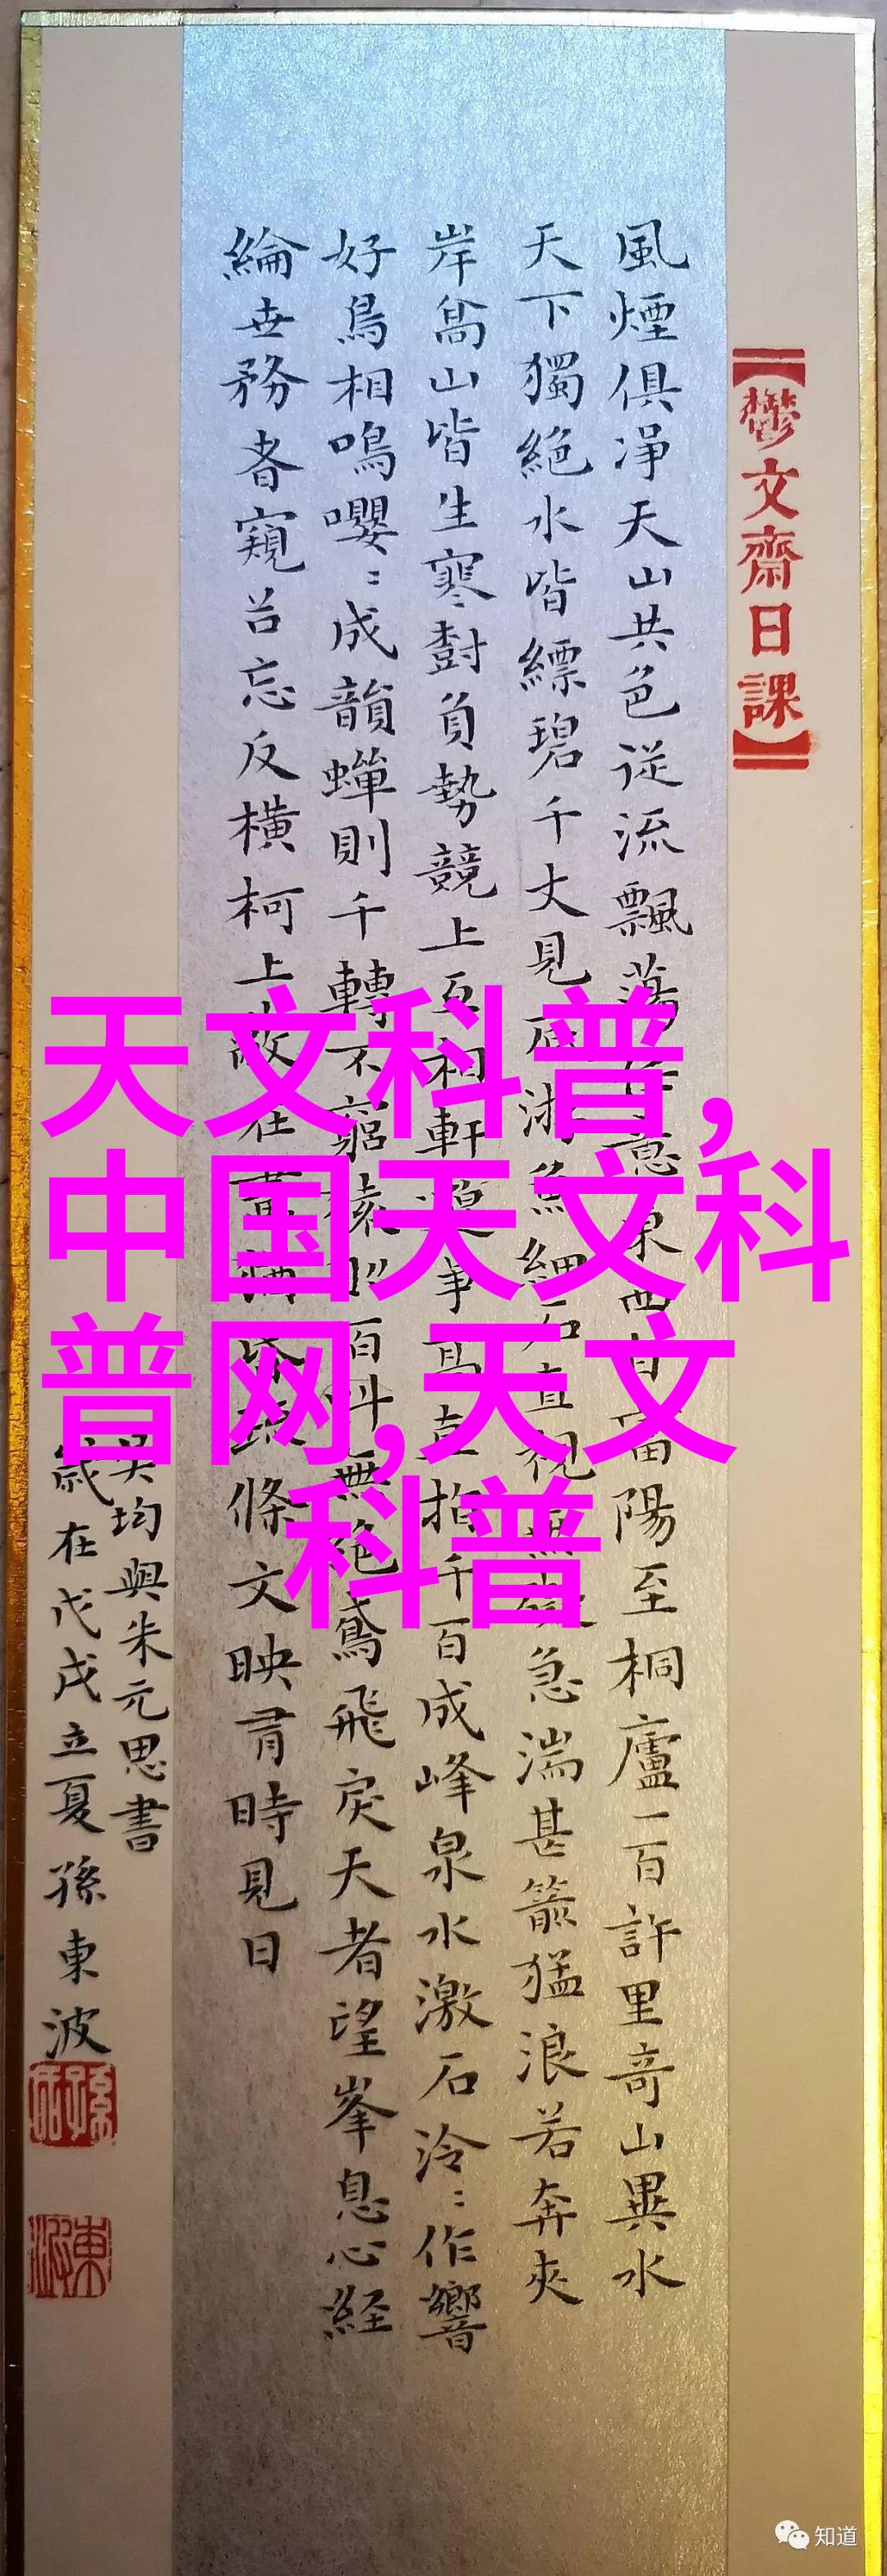 【鬱文齋日課】
風煙俱淨天山共色従流飄蕩任意東西自富陽至桐廬一百許里竒山異水
天下獨絶水皆縹碧千丈見底游魚細石直視急湍甚箭猛浪若奔夾
岸髙山皆生寒樹負勢競上互相軒邈爭髙直指千百成峰泉水激石泠〻作響
好鳥相鳴嚶〻成韻蟬則千轉不窮猿則百叫無絶鳶飛戾天者望峯息心経
綸世務者窺谷忘反橫柯上蔽在晝猶昏疎條交映有時見日
吳均與朱元思書
歲在戊戌立夏孫東波
東波
天文科普,
中国天文科
普网,天文
科普
知道